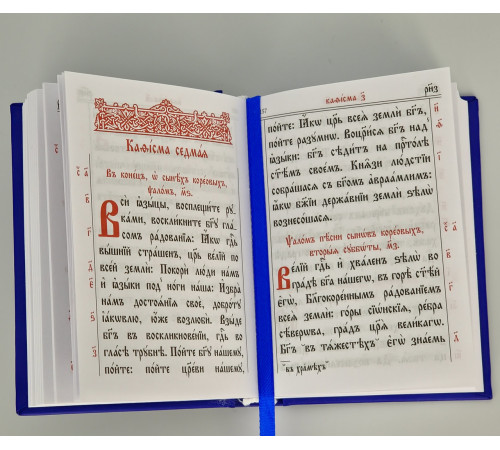 Каѳі́сма седмаѧ
Въ коне́цъ, ѡ҆ сынѣ́хъ коре́овыхъ,
ѱало́мъ, м҃ѕ.
Всѝ ꙗ҆зы́цы, восплещи́те рꙋ-
ка́ми, воскли́кните бг҃ꙋ гла́-
сомъ ра́дованїѧ: Ꙗ҆́кѡ гдⷭ҇ь
вы́шнїй стра́шенъ, цр҃ь ве́лїй по
все́й землѝ: Покорѝ лю́ди на́мъ
и҆ ꙗ҆зы́ки под̾ но́ги на́ша: И҆збра̀
на́мъ достоѧ́нїе своѐ, добро́тꙋ
і҆а́кѡвлю, ю҆́же возлюбѝ. Взы́де
бг҃ъ въ воскликнове́нїи, гдⷭ҇ь во
гла́сѣ трꙋ́бнѣ. По́йте бг҃ꙋ на́шемꙋ,
по́йте: по́йте цр҃е́ви на́шемꙋ,
каѳі́сма з҃
рн҃з
по́йте: Ꙗ҆́кѡ цр҃ь всеѧ̀ землѝ бг҃ъ,
по́йте разꙋ́мнѡ. Воцр҃и́сѧ бг҃ъ над̾
ꙗ҆зы́ки: бг҃ъ сѣди́тъ на прⷭ҇то́лѣ
ст҃ѣ́мъ свое́мъ. Кнѧ̑зи лю́дстїи
собра́шасѧ съ бг҃омъ а҆враа́млимъ:
ꙗ҆́кѡ бж҃їи держа́внїи землѝ ѕѣлѡ̀
вознесо́шасѧ.
Ѱало́мъ пѣ́сни сынѡ́въ коре́овыхъ,
вторы́ѧ сꙋббѡ́ты, м҃з.
Ве́лїй гдⷭ҇ь и҆ хва́ленъ ѕѣлѡ̀ во
гра́дѣ бг҃а на́шегѡ, въ горѣ̀ ст҃ѣ́й
є҆гѡ̀, Благокоре́ннымъ ра́дованїемъ
всеѧ̀ землѝ: го́ры сїѡ̑нскїѧ, ре́бра
сѣ́верѡва, гра́дъ цр҃ѧ̀ вели́кагѡ.
Бг҃ъ въ тѧ́жестехъ є҆гѡ̀ зна́емь
въ хра́мѣхъ